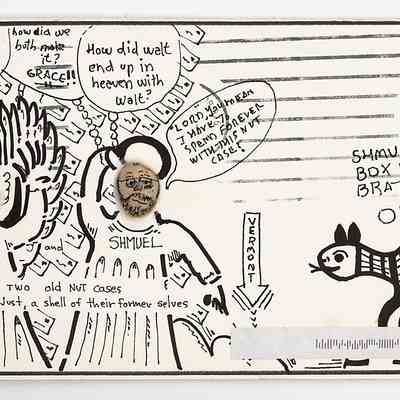 how did we
both make
it?
GRACE!!
How did walt
end up in
heeven with
Walt?
"LORD, YOU MEAN
I HAVE TO
SPEND FOREVER
WITH THIS NUT
CASE!
SHMU
BOX
BRA
SHMUEL
and
VERMONT
TWO old NUT cases
Just, a shell of their former selves